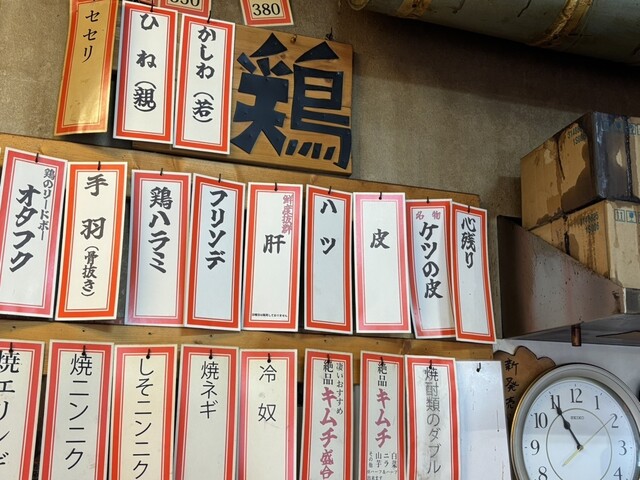 380
セセリ
ひね(親)
かしわ(若)
鶏
鶏のリードボー
オタフク
手羽(骨抜き)
鶏ハラミ
フリソデ
鮮度抜群
肝
ハツ
皮
名物
ケツの皮
心残り
焼エリンギ
焼ニンニク
しそニンニク
焼ネギ
冷奴
凄いおすすめ
絶品
キムチ盛合
絶品
キムチ
白菜
ニラ
山芋
焼酎類のダブル
SEIKO
12
1
2
3
9
10
11